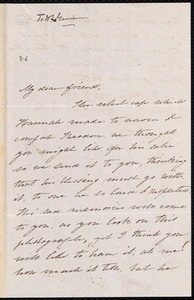 To W. L. Garrison
My dear friend,
The velvet cap which
Hannah made to warm &
comfort Theodore, we thought
you might like for his sake
so we send it to you, thinking
that his blessing must go with
it, to one he so loved & respected.
His sad memories will come
to you, as you look on this
photograph, yet I think you
will like to have it, ah me!
how much it tells, but he